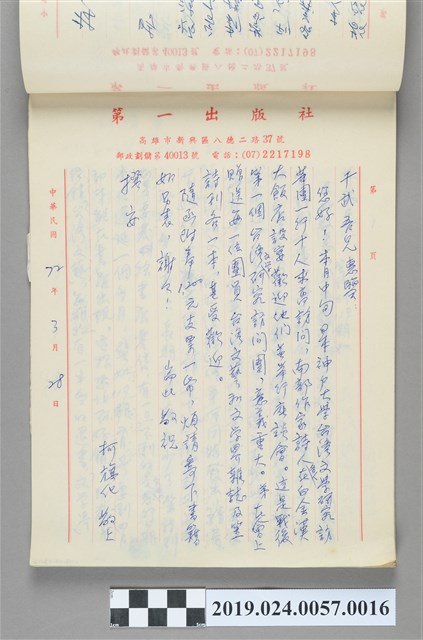 郵政劃儲第40013號 電話：(07)2217198
第一出版社
高雄市新興區八德二路37號
郵政劃儲第40013號 電話：(07)2217198
第 頁
千武吾兄惠鑒：
您好！本月中旬日本神戶大學台灣文學研究訪
華團一行十人來高訪問，南部作家詩人在白金漢
大飯店設宴歡迎他們並舉行座談會。這是戰後
第一個台灣文學研究訪問團，意義重大。弟在會上
贈送每位團員台灣文藝和文學界雜誌及笠
詩刊各一本，甚受歡迎。
隨函附寄 元支票一帋，煩請寄下書籍
如另表，謝々！ 耑此 敬祝
撰安
柯旗化 敬上
中華民國72年3月28日
2019.024.0057.0016